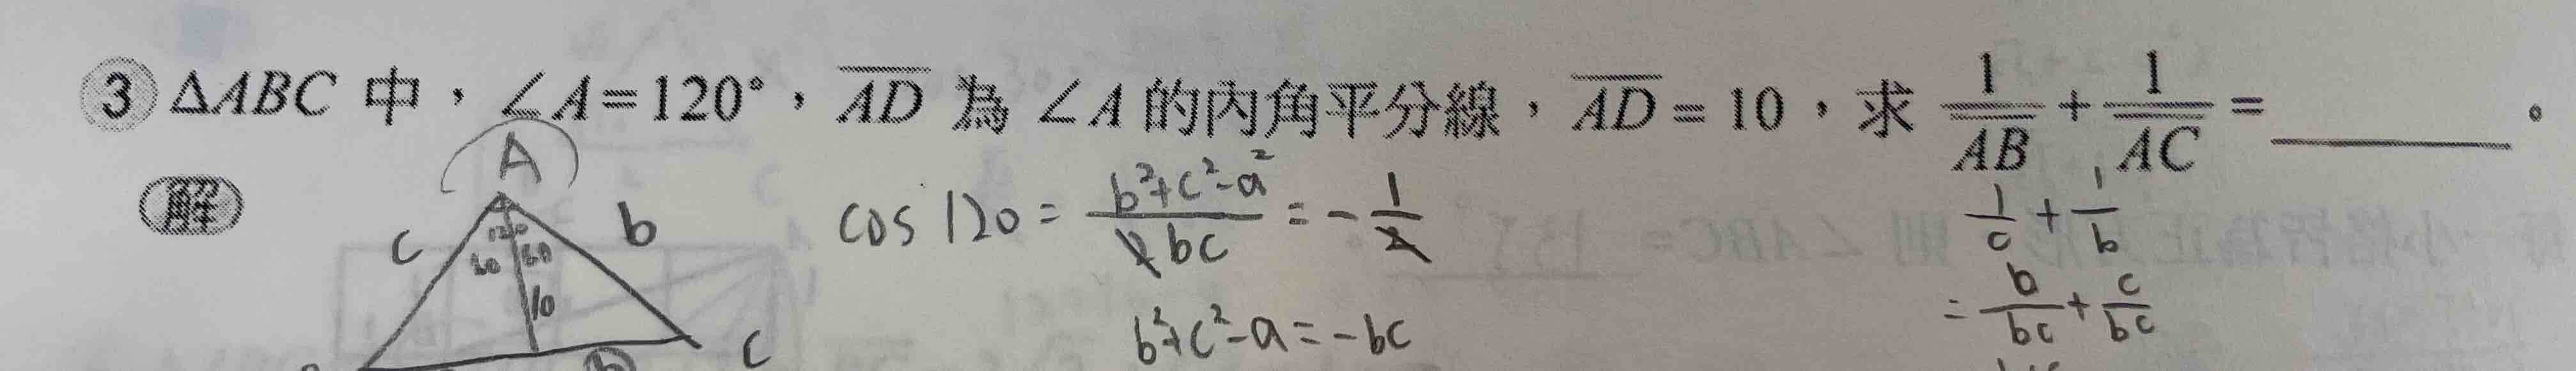 ③ △ABC 中，∠A=120°，AD 為 ∠A 的內角平分線，AD = 10，求 1/AB + 1/AC = ______。
解
A
c
b
120
60 60
10
C
D
cos 120 = (b²+c²-a²)/(2bc) = -1/2
b²+c²-a = -bc
1/c + 1/b
= b/bc + c/bc